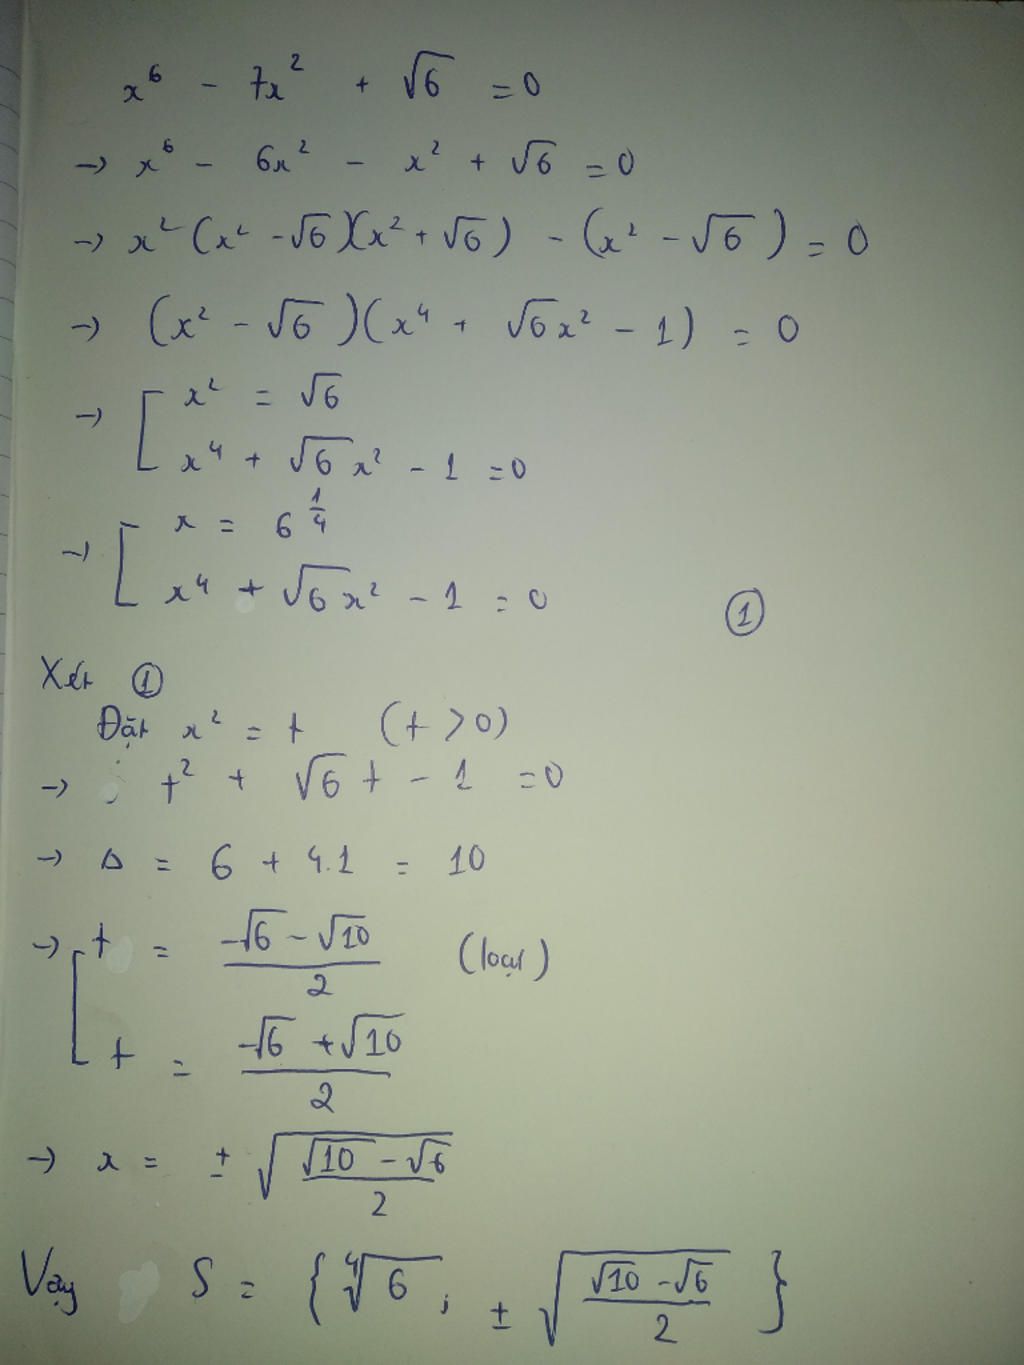 x⁶ - 7x² + √6 = 0
→ x⁶ - 6x² - x² + √6 = 0
→ x² (x² - √6)(x² + √6) - (x² - √6) = 0
→ (x² - √6)(x⁴ + √6x² - 1) = 0
→ [ x² = √6
x⁴ + √6x² - 1 = 0
→ [ x = 6^(1/4)
x⁴ + √6x² - 1 = 0 ①
Xét ①
Đặt x² = t (t > 0)
→ t² + √6 t - 1 = 0
→ Δ = 6 + 4.1 = 10
→ [ t = (-√6 - √10)/2 (loại)
t = (-√6 + √10)/2
→ x = ± √((√10 - √6)/2)
Vậy S = { ∜6 ; ± √((√10 - √6)/2) }